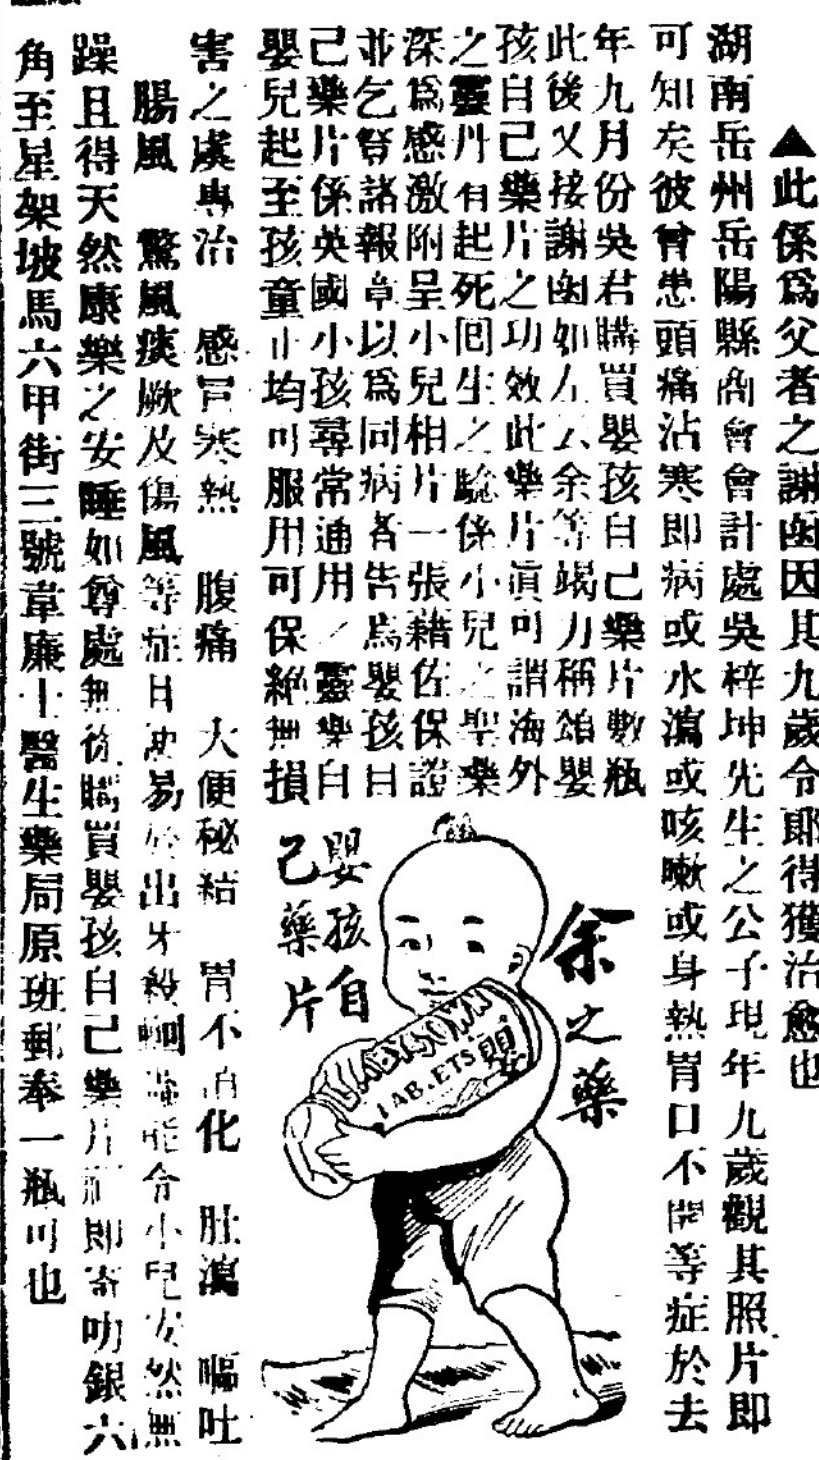 ▲此係爲父者之謝函因其九歲令郎得獲治愈也
湖南岳州岳陽縣商會會計處吳梓坤先生之公子現年九歲觀其照片即
可知矣彼曾患頭痛沾寒即病或水瀉或咳嗽或身熱胃口不開等症於去
年九月份吳君購買嬰孩自己藥片數瓶
此後又接謝函如左云余等竭力稱頌嬰
孩自己藥片之功效此藥片眞可謂海外
之靈丹有起死回生之驗係小兒之聖藥
深爲感激附呈小兒相片一張藉佐保證
並乞登諸報章以爲同病者告焉嬰孩自
己藥片係英國小孩尋常通用之靈藥自
嬰兒起至孩童止均可服用可保絕無損
害之虞專治 感冒寒熱 腹痛 大便秘結 胃不消化 肚瀉 嘔吐
腸風 驚風痰厥及傷風等症且 易於出牙殺蛔 能令小兒安然無
躁且得天然康樂之安睡如尊處無從購買嬰孩自己藥片 即寄 銀六
角至星架坡馬六甲街三號韋廉士醫生藥局原班郵奉一瓶可也
余之藥
嬰孩自
己藥片
BABYSOWN
TABLETS
嬰